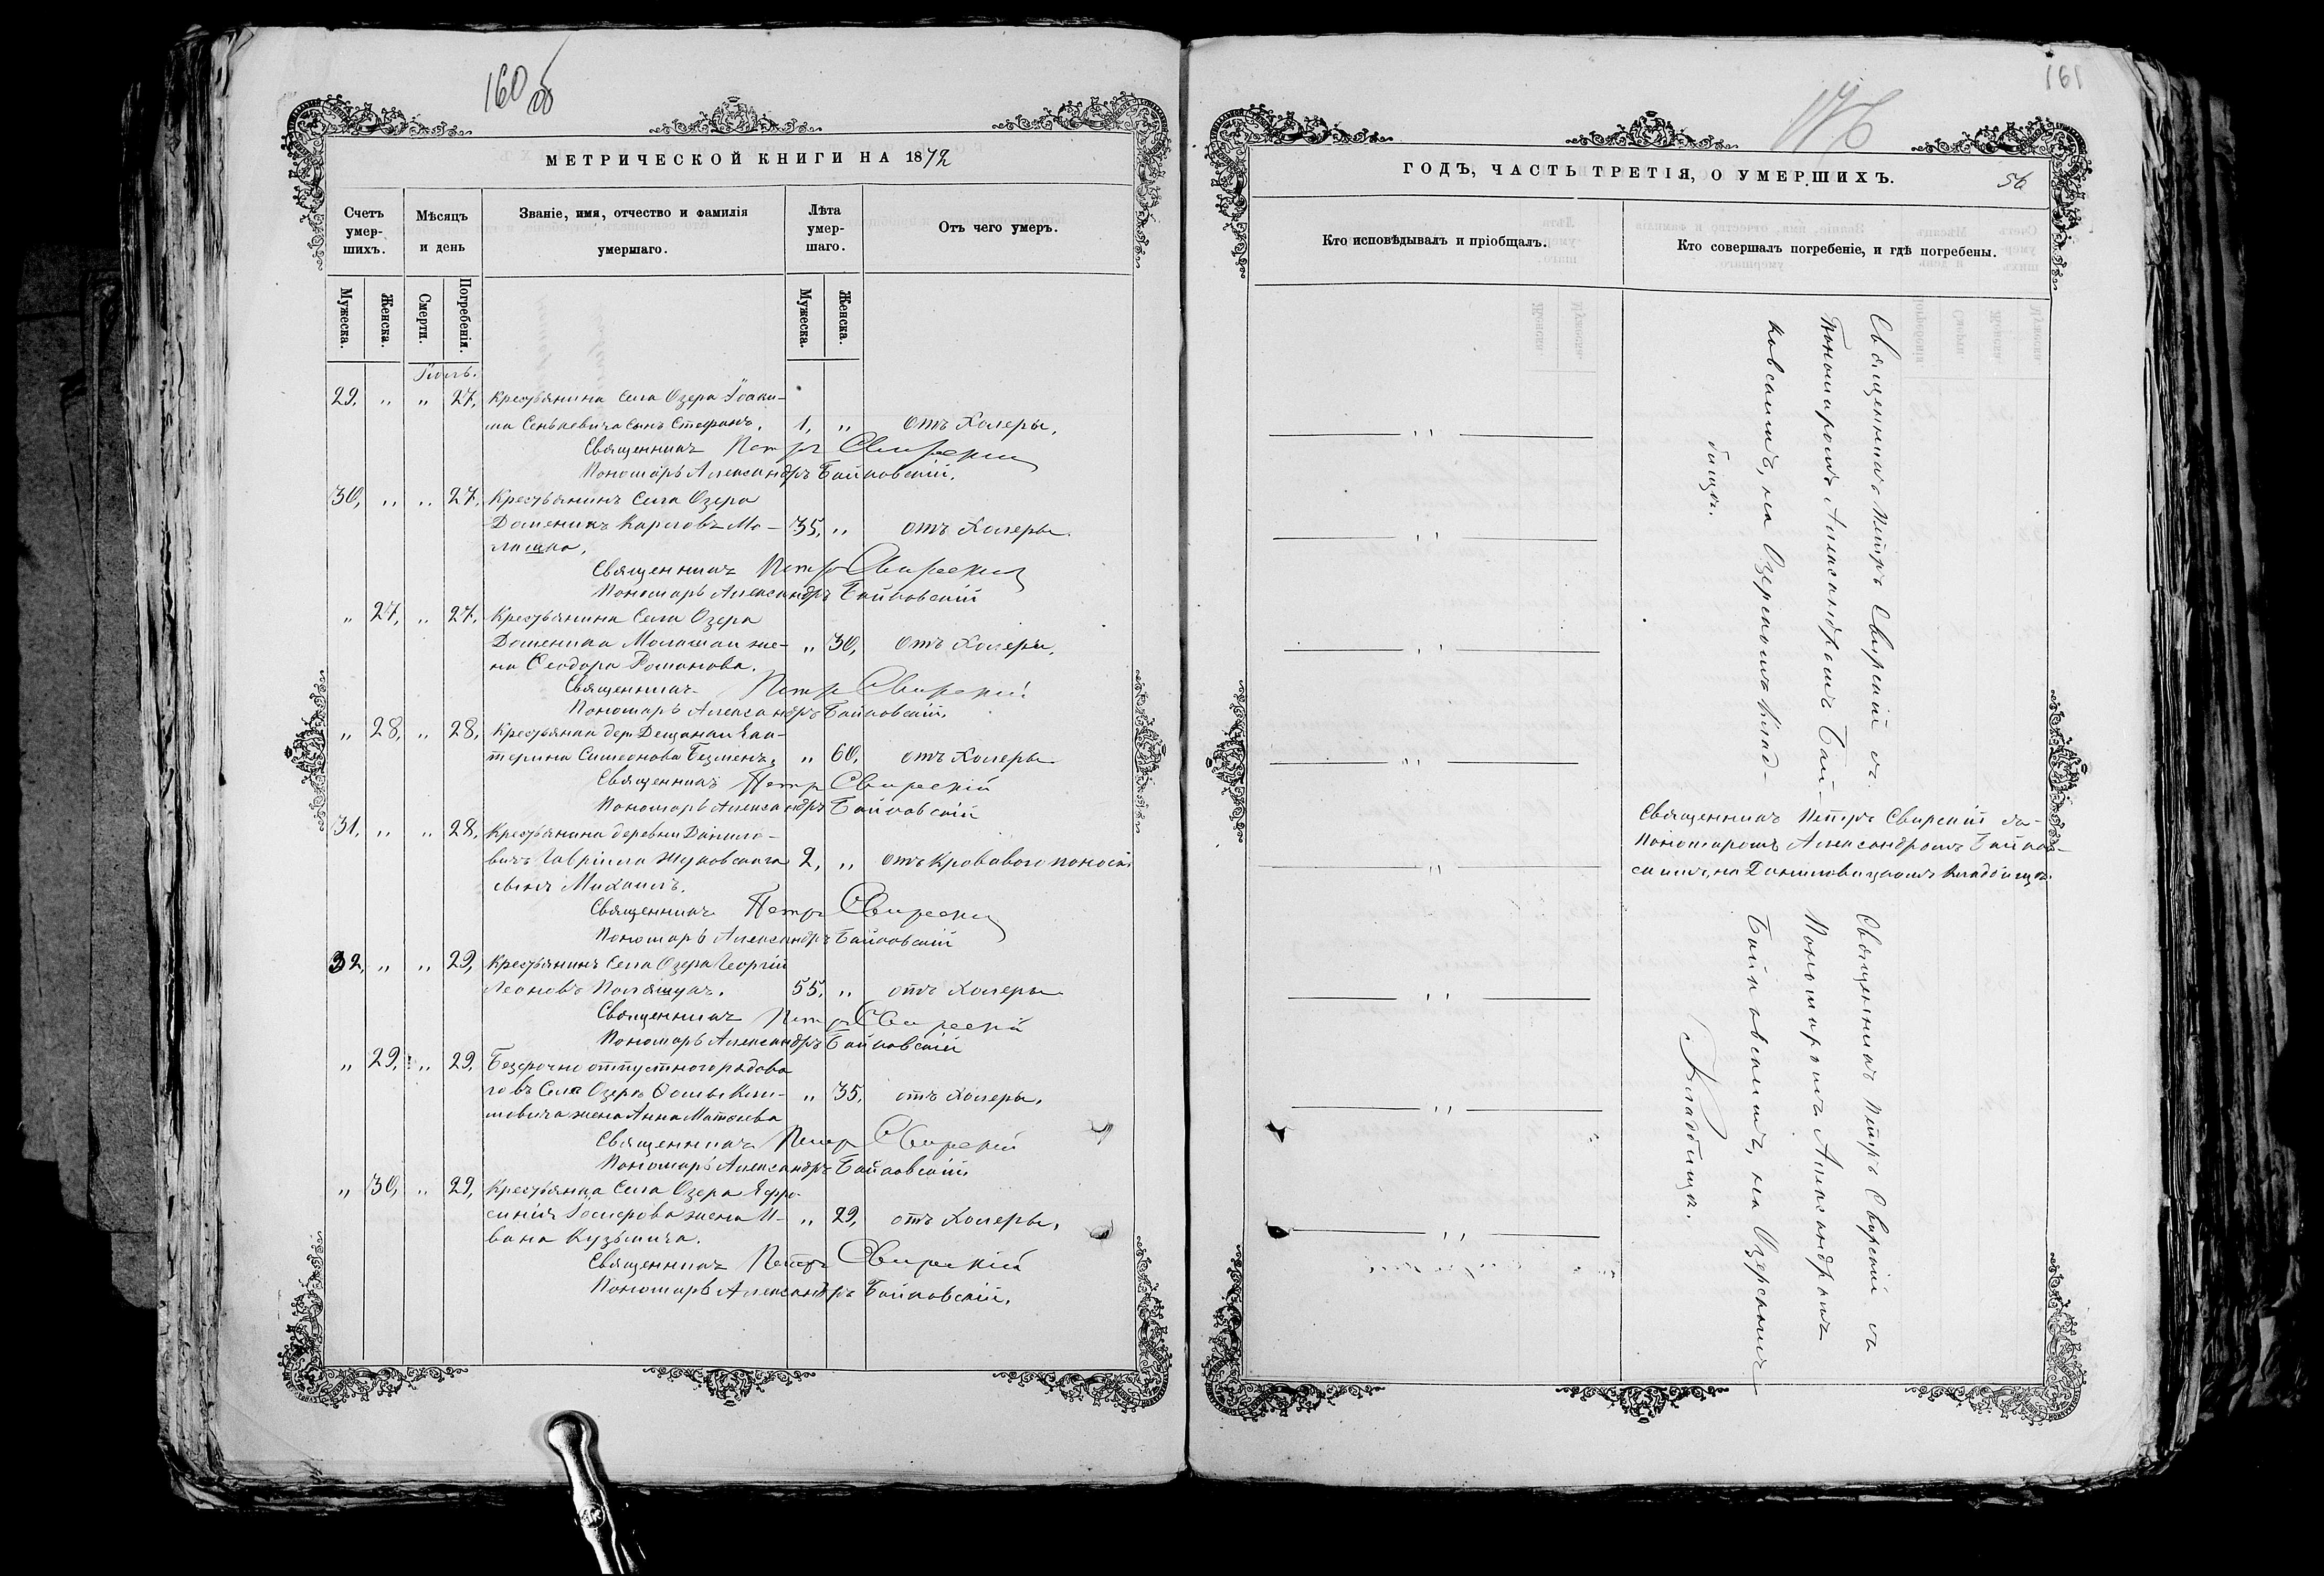 160 об
МЕТРИЧЕСКОЙ КНИГИ НА 1872
Счетъ умер-шихъ.
Мѣсяцъ и день
Званіе, имя, отчество и фамилія умершаго.
Лѣта умер-шаго.
Отъ чего умеръ.
Мужеска.
Женска.
Смерти.
Погребенія.
Мужеска.
Женска.
29, " " 27, Крестьянина Села Озера Іоаки-
ма Сенькевича сынъ Стефанъ, 1, " отъ Холеры,
Священникъ Петръ Свирскій
Пономарь Александръ Байковскій.
30, " " 27, Крестьянинъ Села Озера
Доменикъ Карловъ Мо- 35, " отъ Холеры.
Священникъ Петръ Свирскій
Пономарь Александръ Байковскій
" 27, " 27, Крестьянина Села Озера
Доменика жe- " 30, отъ Холеры,
на Ѳеодора Романова.
Священникъ Петръ Свирскій
Пономарь Александръ Байковскій.
" 28, " 28, Крестьянка дер. Ека-
терина Симеонова " 60, отъ Холеры
Священникъ Петръ Свирскій
Пономарь Александръ Байковскій
31, " " 28, Крестьянина деревни Данило-
вичъ Гавріила Жуковскаго 2, " отъ Кроваваго поноса
сынъ Михаилъ.
Священникъ Петръ Свирскій
Пономарь Александръ Байковскій
32, " " 29, Крестьянинъ Села Озера Георгій
Леоновъ Полящукъ. 55, " отъ Холеры
Священникъ Петръ Свирскій
Пономарь Александръ Байковскій
" 29, " 29, Безсрочно отпустного рядова
го въ Селѣ Озерѣ " 35, отъ Холеры,
жена Анна Матѳеева
Священникъ Петръ Свирскій
Пономарь Александръ Байковскій
" 30, " 29, Крестьянка Села Озера Ефро-
синія жена И- " 29, отъ Холеры,
вана Кузьмича.
Священникъ Петръ Свирскій
Пономарь Александръ Байковскій.
161
176
ГОДЪ, ЧАСТЬ ТРЕТІЯ, О УМЕРШИХЪ.
56
Кто исповѣдывалъ и пріобщалъ.
Кто совершалъ погребеніе, и гдѣ погребены.
Священникъ Петръ Свирскій съ
Пономаромъ Александромъ Бай-
ковскимъ, на Озерскомъ клад-
бищѣ.
Священникъ Петръ Свирскій съ
Пономаромъ Александромъ Байков-
скимъ, на Даниловицкомъ кладбищѣ.
Священникъ Петръ Свирскій съ
Пономаромъ Александромъ
Байковскимъ, на Озерскомъ
Кладбищѣ.